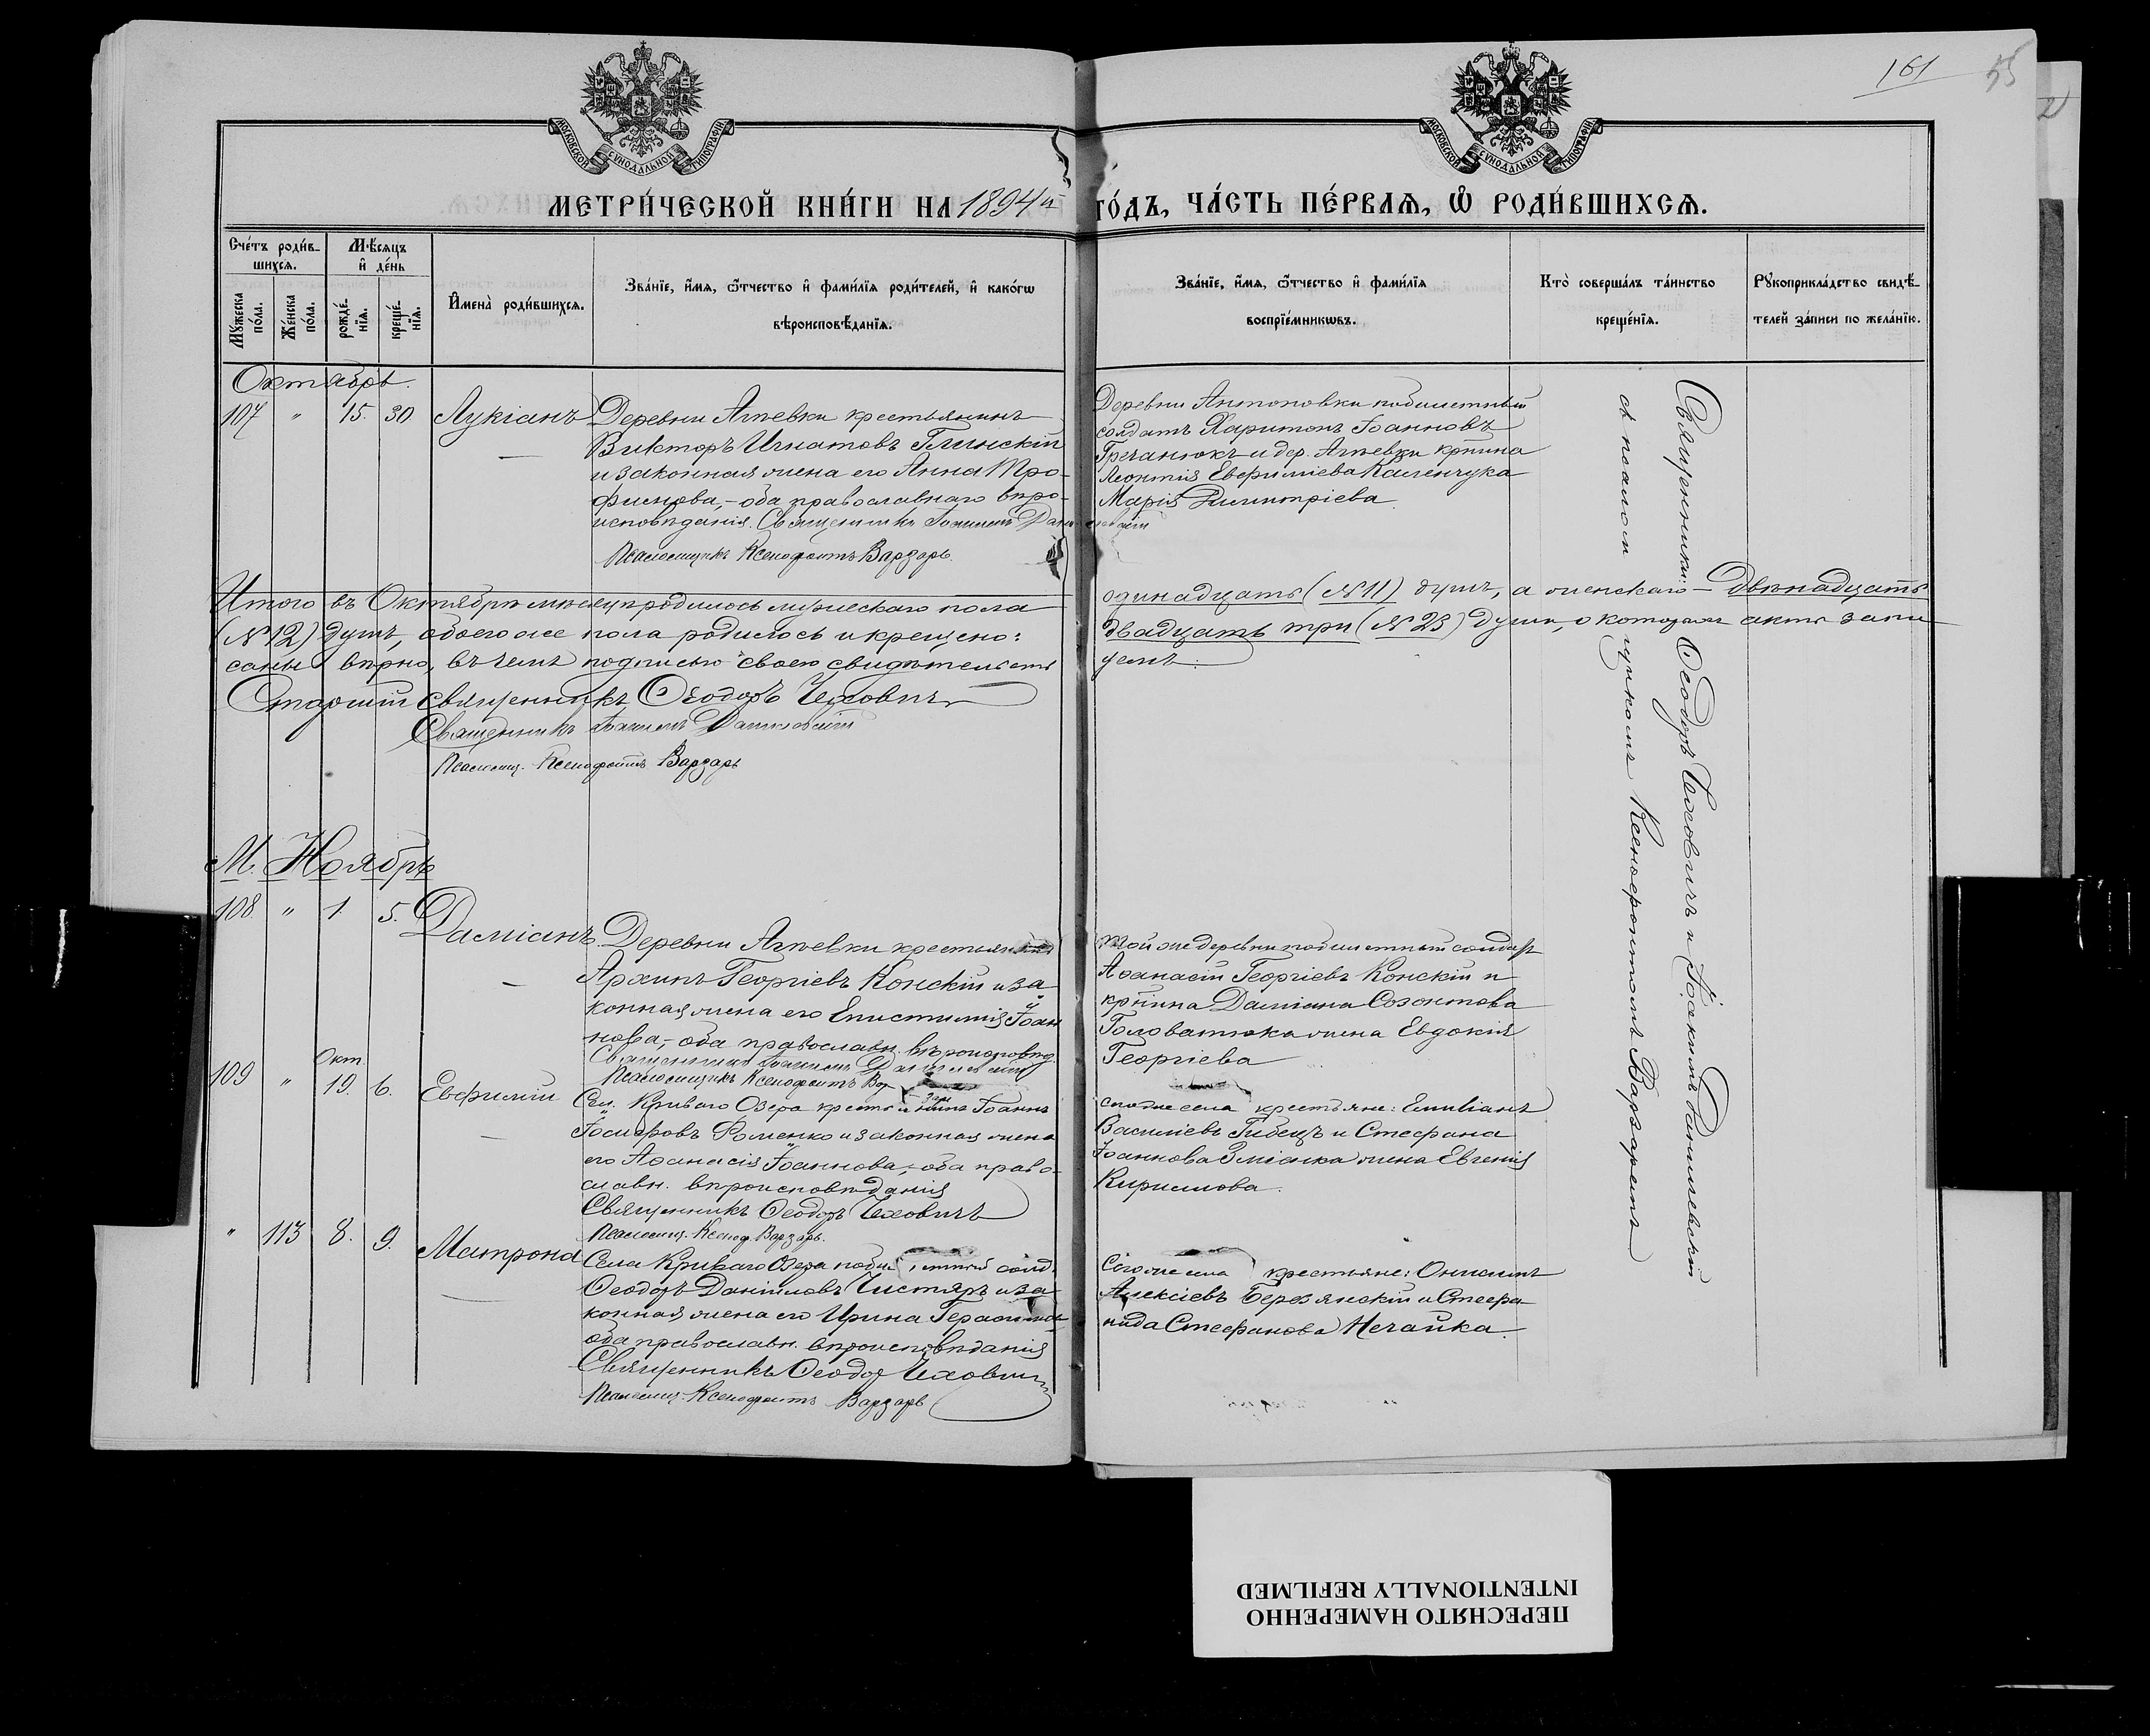 161 55
МОСКОВСКОЙ СѴНОДАЛЬНОЙ ТИПОГРАФІИ
МОСКОВСКОЙ СѴНОДАЛЬНОЙ ТИПОГРАФІИ
МЕТРИ́ЧЕСКОЙ КНИ́ГИ НА 1894й ГО́ДЪ, ЧА́СТЬ ПЕ́РВАЯ, Ѡ РОДИ́ВШИХСЯ.
Сче́тъ роди́в-
шихся.
Мꙋ́жеска по́ла.
Же́нска по́ла.
Мѣ́сяцъ и де́нь
рожде́-нїя.
креще́-нїя.
Имена̀ роди́вшихся.
Зва́нїе, и́мя, ѻ́тчество и фами́лїя роди́телей, и како́гѡ
вѣроисповѣ́данїя.
Зва́нїе, и́мя, ѻ́тчество и фами́лїя
воспрїе́мникѡвъ.
Кто̀ соверша́лъ та́инство
креще́нїя.
Рꙋкоприкла́дство свидѣ́-
телей за́писи по жела́нїю.
Октябрь.
107 " 15. 30 Лукіанъ
Деревни Агѣевки крестьянинъ
Викторъ Игнатовъ Глинскій
и законная жена его Анна Тро-
фимова, – оба православнаго вѣро-
исповѣданія. Священникъ Іоакимъ Данилевскій
Псаломщикъ Ксенофонтъ Варзарь
Деревни Антоновки побилетный
солдатъ Харитонъ Іоанновъ
Гречанюкъ и дер. Агѣевки крѣнина
Леонтія Евфиміева Каленчука
Марія Димитріева.
Итого въ Октябрѣ мѣсяцѣ родилось мужескаго пола одинадцать (№ 11) душъ, а женскаго – двѣнадцать
(№ 12) душъ, обоего же пола родилось и крещено: двадцать три (№ 23) души, о которыхъ акты запи
саны вѣрно, въ чемъ подписью своею свидѣтельств уемъ:
Старшій священникъ Ѳеодоръ Чеховичъ
Священникъ Іоакимъ Данилевскій
Псаломщ. Ксенофонтъ Варзарь
М. Ноябрь
108. " 1. 5. Даміанъ.
Деревни Агѣевки крестьянинъ
Архипъ Георгіевъ Конскій и за
конная жена его Епистимія Іоан
нова, – оба православн. вѣроисповѣд.
Священникъ Іоакимъ Данилевскій
Псаломщикъ Ксенофонтъ Вар
зарь
Той же деревни побилетный солдатъ
Аѳанасій Георгіевъ Конскій и
крѣнина Даміана Созонтова
Головатюка жена Евдокія
Георгіева
109 " Окт 19. 6. Евфимій
Сел. Криваго Озера крестьянинъ Іоаннъ
Іосифовъ Фоменко и законная жена
его Аѳанасія Іоаннова, – оба право-
славн. вѣроисповѣданія
Священникъ Ѳеодоръ Чеховичъ
Псаломщ. Ксеноф. Варзарь.
сего же села крестьяне: Емиліанъ
Василіевъ Гибецъ и Стефана
Іоаннова Зміанка жена Евгенія
Кириллова.
" 113 8. 9. Матрона
Села Криваго Озера побилетный солд.
Ѳеодоръ Даніиловъ Чистяръ и за
конная жена его Ирина Герасимова
оба православн. вѣроисповѣданія
Священникъ Ѳеодоръ Чеховичъ
Псаломщ. Ксенофонтъ Варзарь
Сего же села крестьяне: Онисимъ
Алексіевъ Березянскій и Стефа
нида Стефанова Нечайка.
Священники: Ѳеодоръ Чеховичъ и Іоакимъ Данилевскій
съ псаломщикомъ Ксенофонтомъ Варзаремъ
ПЕРЕСНЯТО НАМЕРЕННО
INTENTIONALLY REFILMED